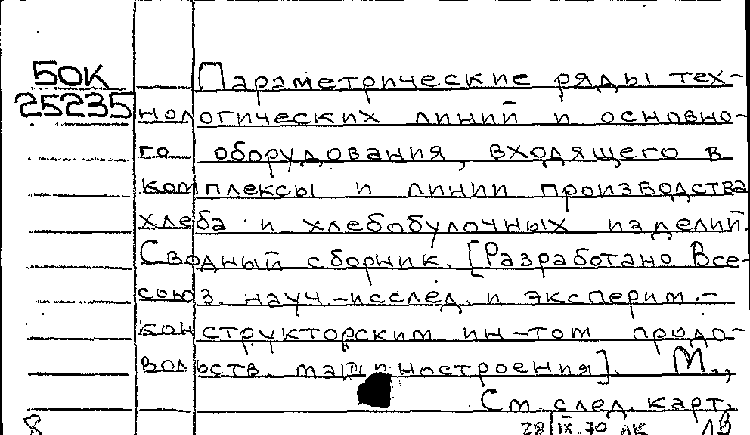 БОК
25235
Параметрические ряды тех-
нологических линий и основно-
го оборудования, входящего в
комплексы и линии производства
хлеба и хлебобулочных изделий.
Сводный сборник. [Разработано Все-
союз. науч.-исслед. и эксперим.-
конструкторским ин-том продо-
вольств. машиностроения]. М.,
См. след. карт.
8 28/IX.70